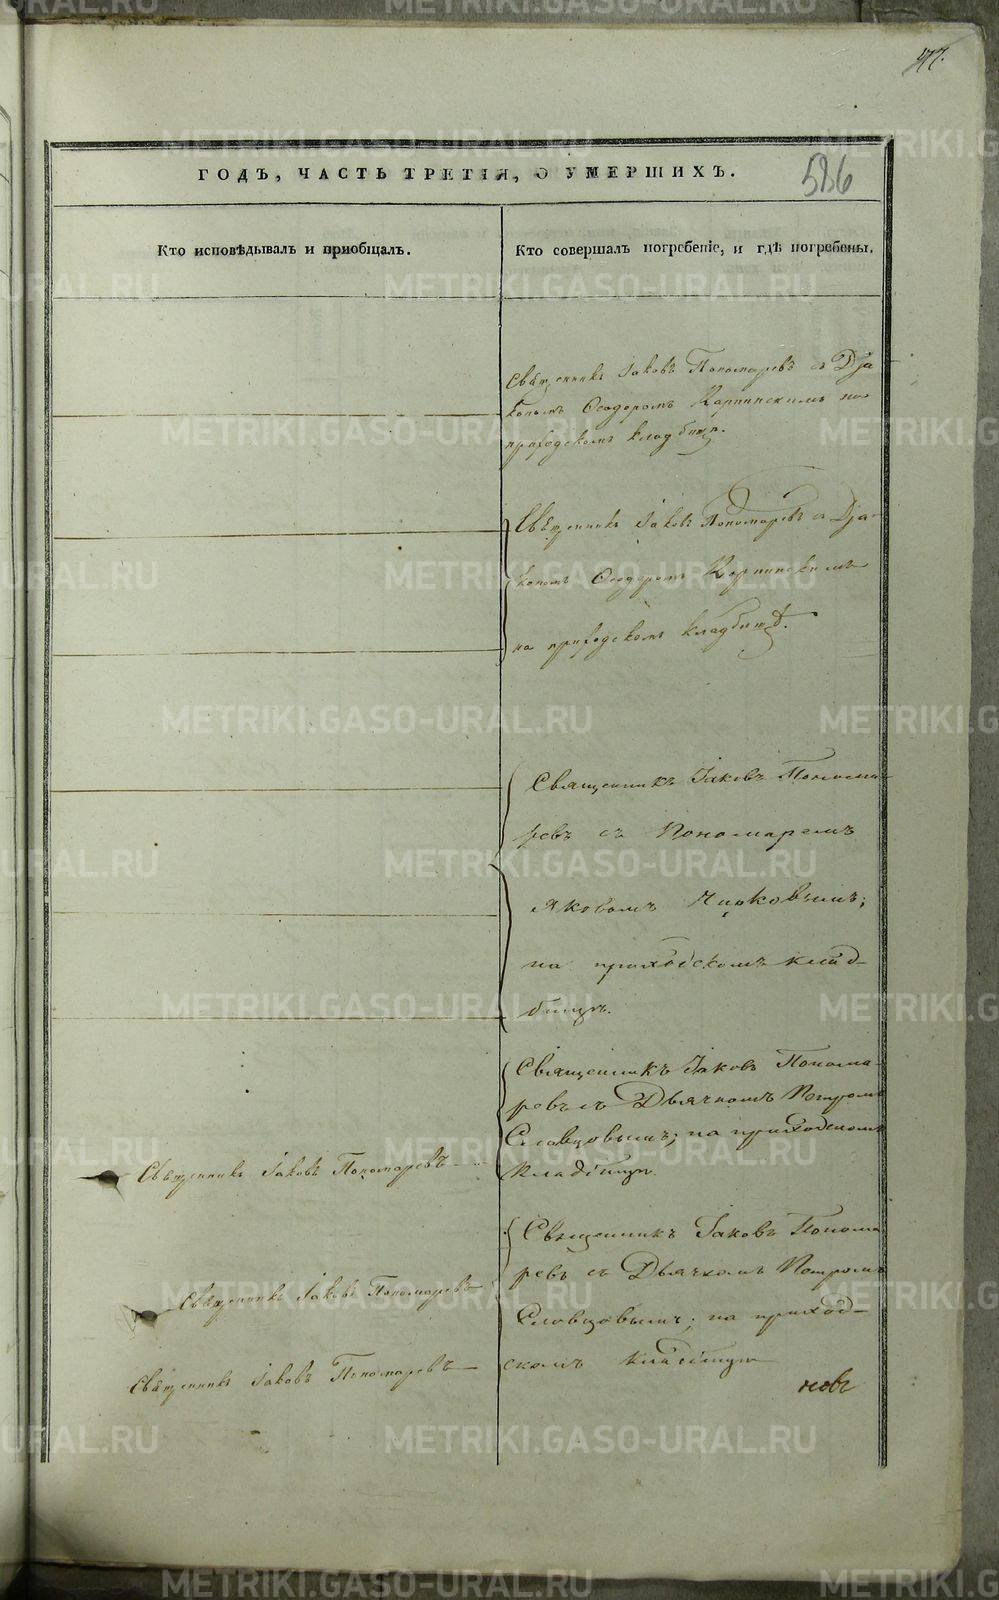 477.
586
ГОДЪ, ЧАСТЬ ТРЕТІЯ, О УМЕРШИХЪ.
Кто исповѣдывалъ и пріобщалъ.
Кто совершалъ погребеніе, и гдѣ погребены.
Священникъ Іаковъ Пономаревъ съ Дја
кономъ Ѳеодоромъ Карпинскимъ на
приходскомъ кладбищѣ.
Священникъ Іаковъ Пономаревъ съ Дја-
кономъ Ѳеодоромъ Карпинскимъ
на приходскомъ кладбищѣ.
Священникъ Іаковъ Понома
ревъ съ Пономаремъ
Яковомъ Чирковымъ;
на приходскомъ клад-
бищѣ.
Священникъ Іаковъ Понома-
ревъ съ Дьячкомъ Петромъ
Словцовымъ; на приходскомъ
кладбищѣ.
Священникъ Іаковъ Пономаревъ
Священникъ Іаковъ Понома
ревъ съ Дьячкомъ Петромъ
Словцовымъ; на приход-
скомъ кладбищѣ
Священникъ Іаковъ Пономаревъ
Священникъ Іаковъ Пономаревъ
новъ
METRIKI.GASO-URAL.RU